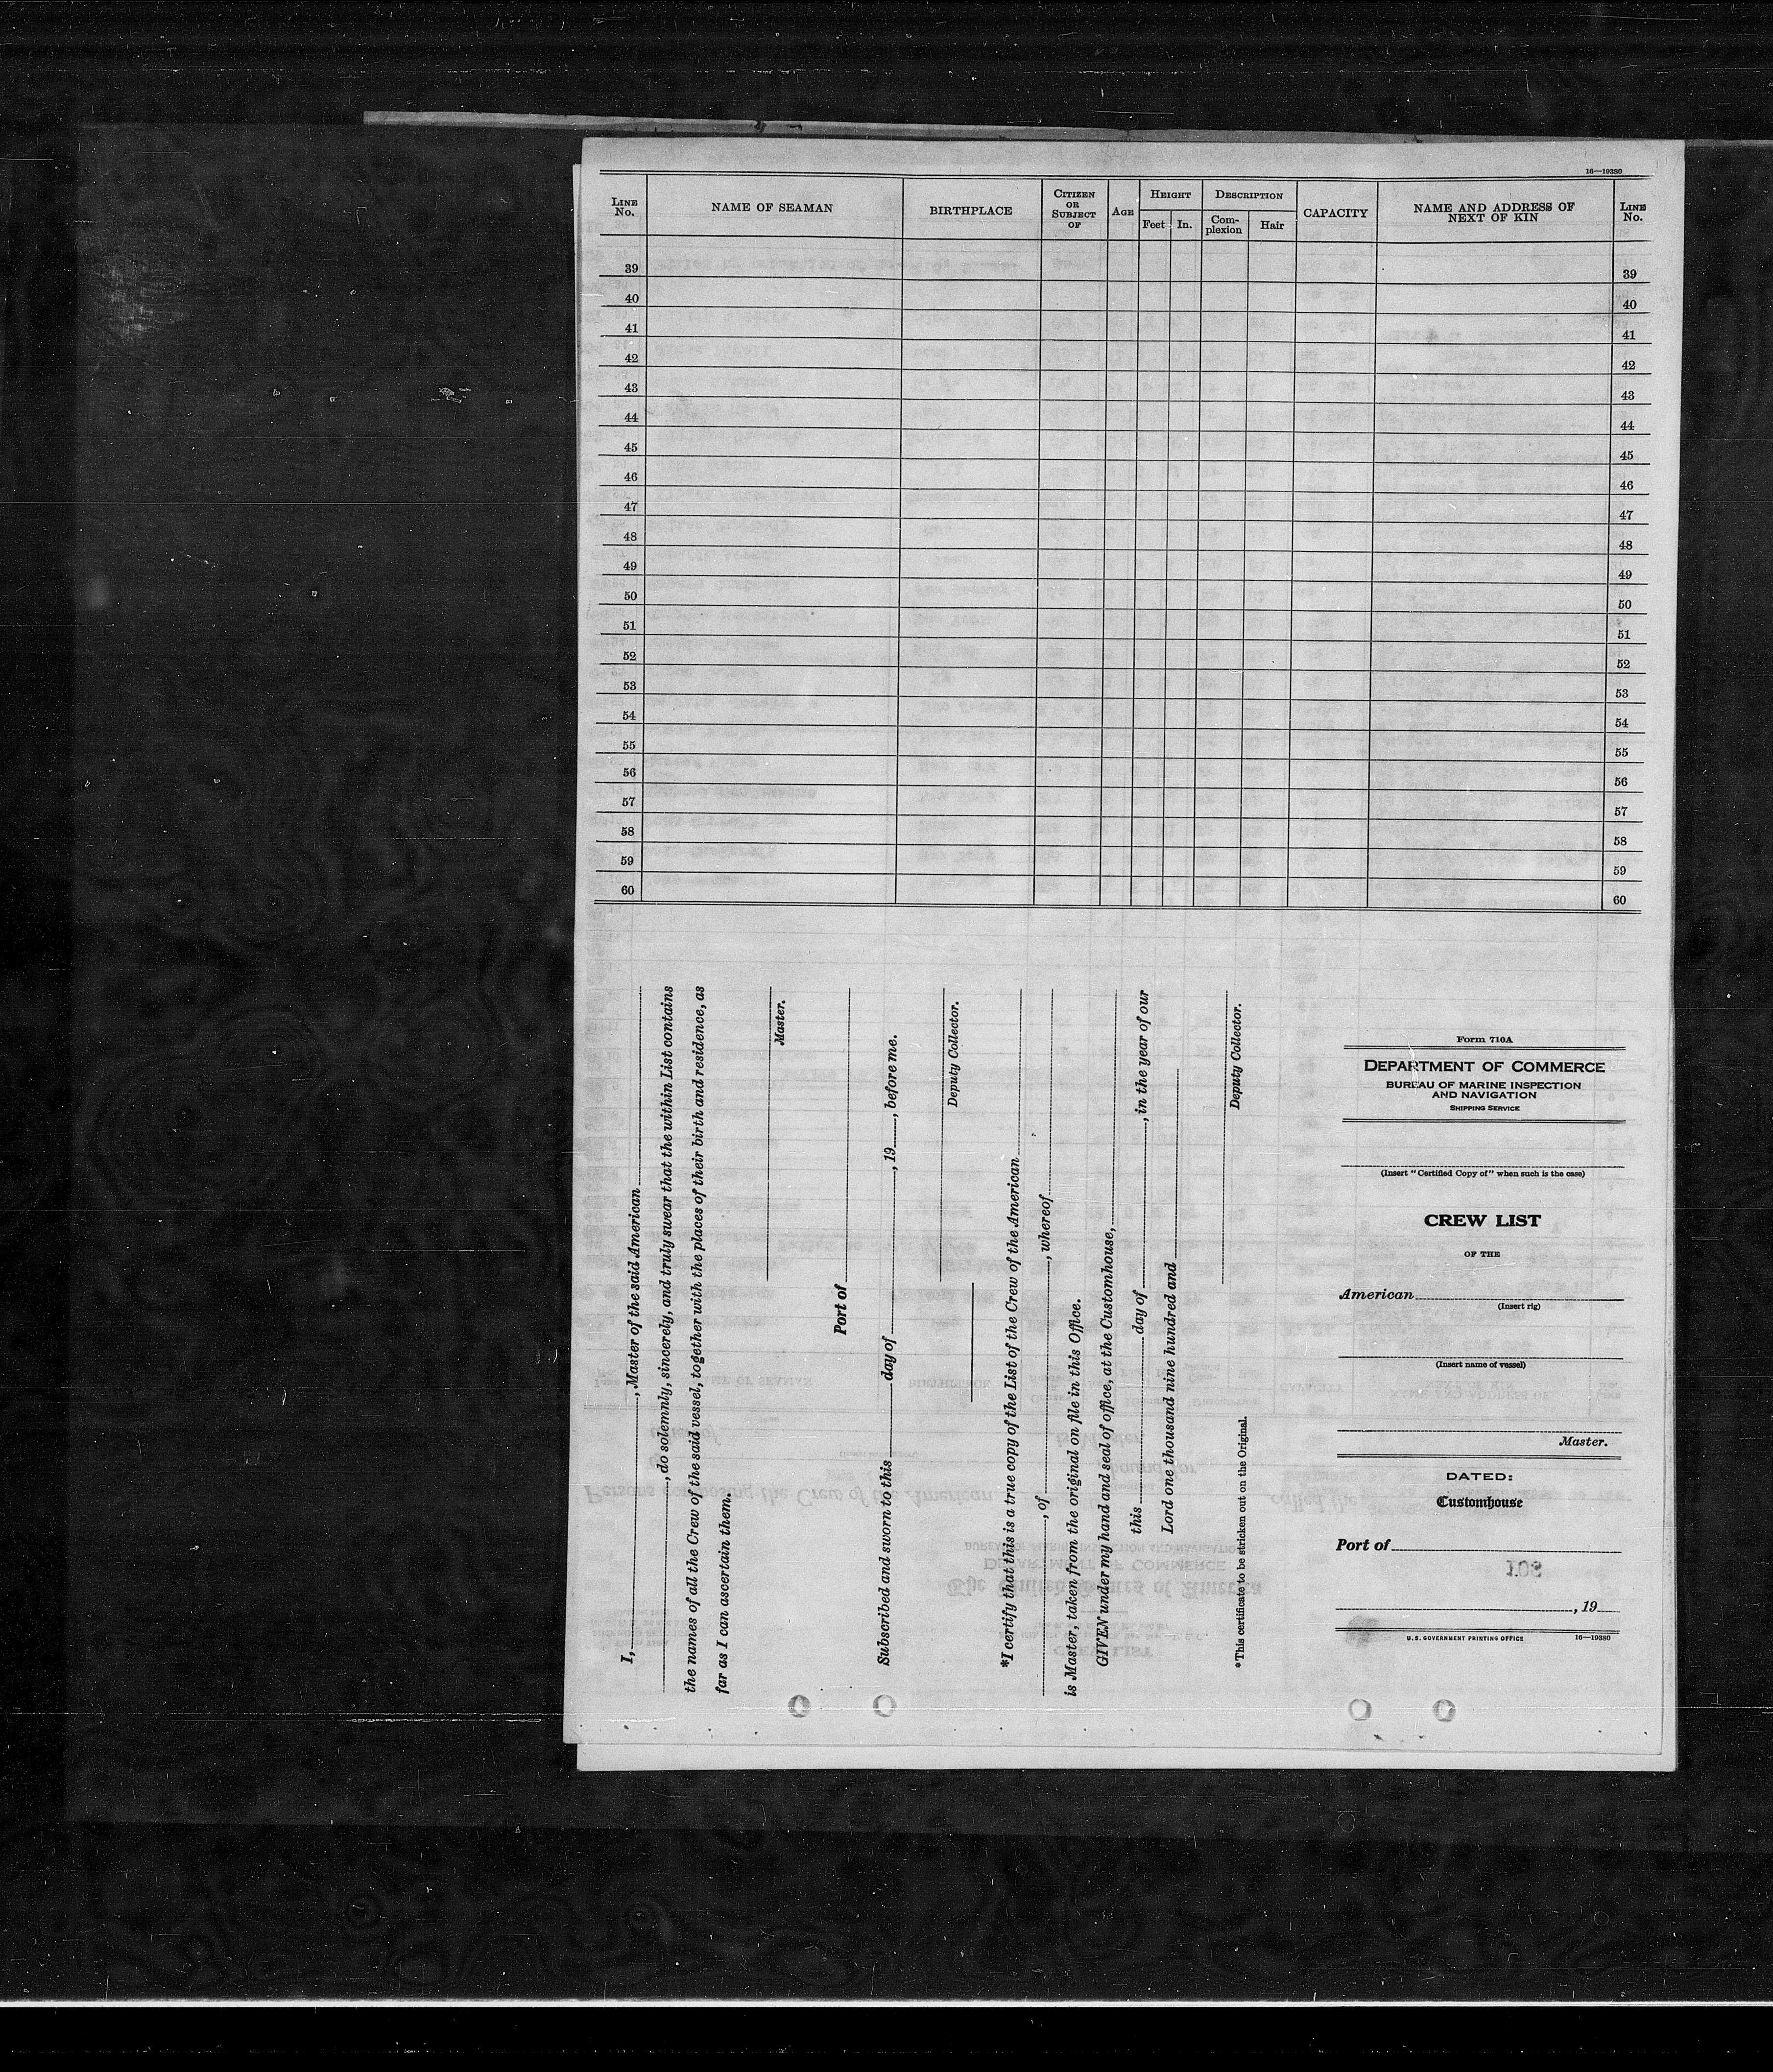 16—19380
LINE No. NAME OF SEAMAN BIRTHPLACE CITIZEN OR SUBJECT OF AGE HEIGHT DESCRIPTION CAPACITY NAME AND ADDRESS OF NEXT OF KIN LINE No.
Feet In. Complexion Hair
39 39
40 40
41 41
42 42
43 43
44 44
45 45
46 46
47 47
48 48
49 49
50 50
51 51
52 52
53 53
54 54
55 55
56 56
57 57
58 58
59 59
60 60
I, , Master of the said American
, do solemnly, sincerely, and truly swear that the within List contains
the names of all the Crew of the said vessel, together with the places of their birth and residence, as
far as I can ascertain them.
Master.
Port of
Subscribed and sworn to this day of , 19 , before me.
Deputy Collector.
*I certify that this is a true copy of the List of the Crew of the American
, of , whereof
is Master, taken from the original on file in this Office.
GIVEN under my hand and seal of office, at the Customhouse,
this day of , in the year of our
Lord one thousand nine hundred and
Deputy Collector.
*This certificate to be stricken out on the Original.
Form 710A
DEPARTMENT OF COMMERCE
BUREAU OF MARINE INSPECTION
AND NAVIGATION
SHIPPING SERVICE
(Insert "Certified Copy of" when such is the case)
CREW LIST
OF THE
American
(Insert rig)
(Insert name of vessel)
Master.
DATED:
Customhouse
Port of
, 19
U.S. GOVERNMENT PRINTING OFFICE 16—19380